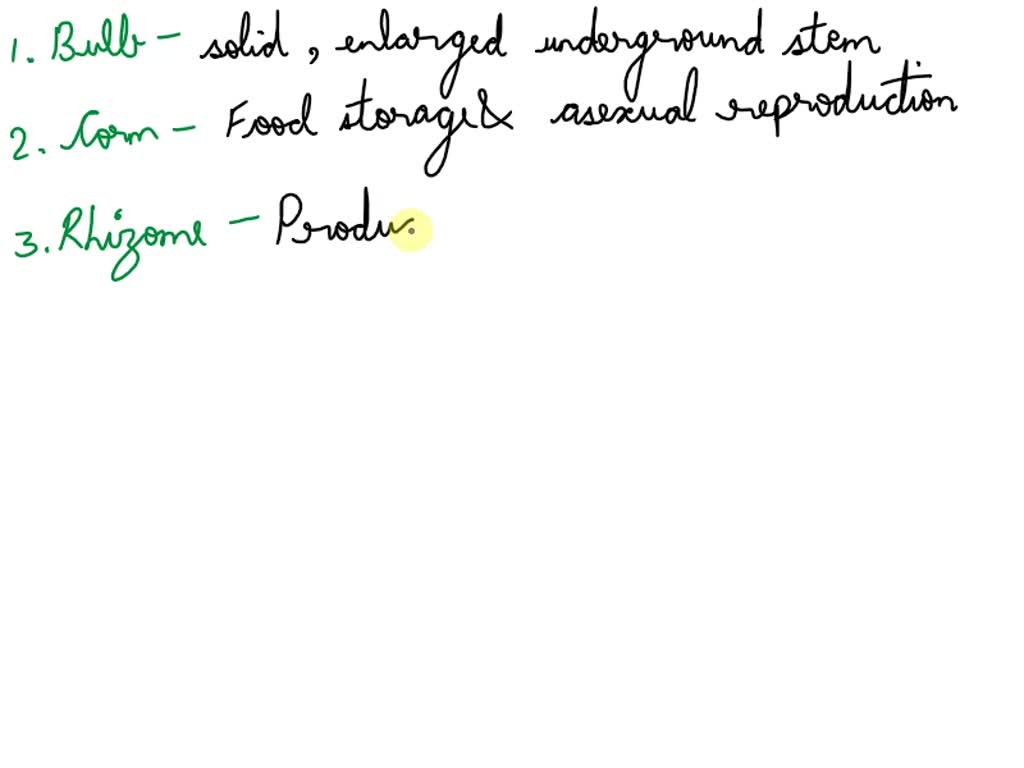 1. Bulb - solid, enlarged underground stem
2. Corm - Food storage & asexual reproduction
3. Rhizome - Produ